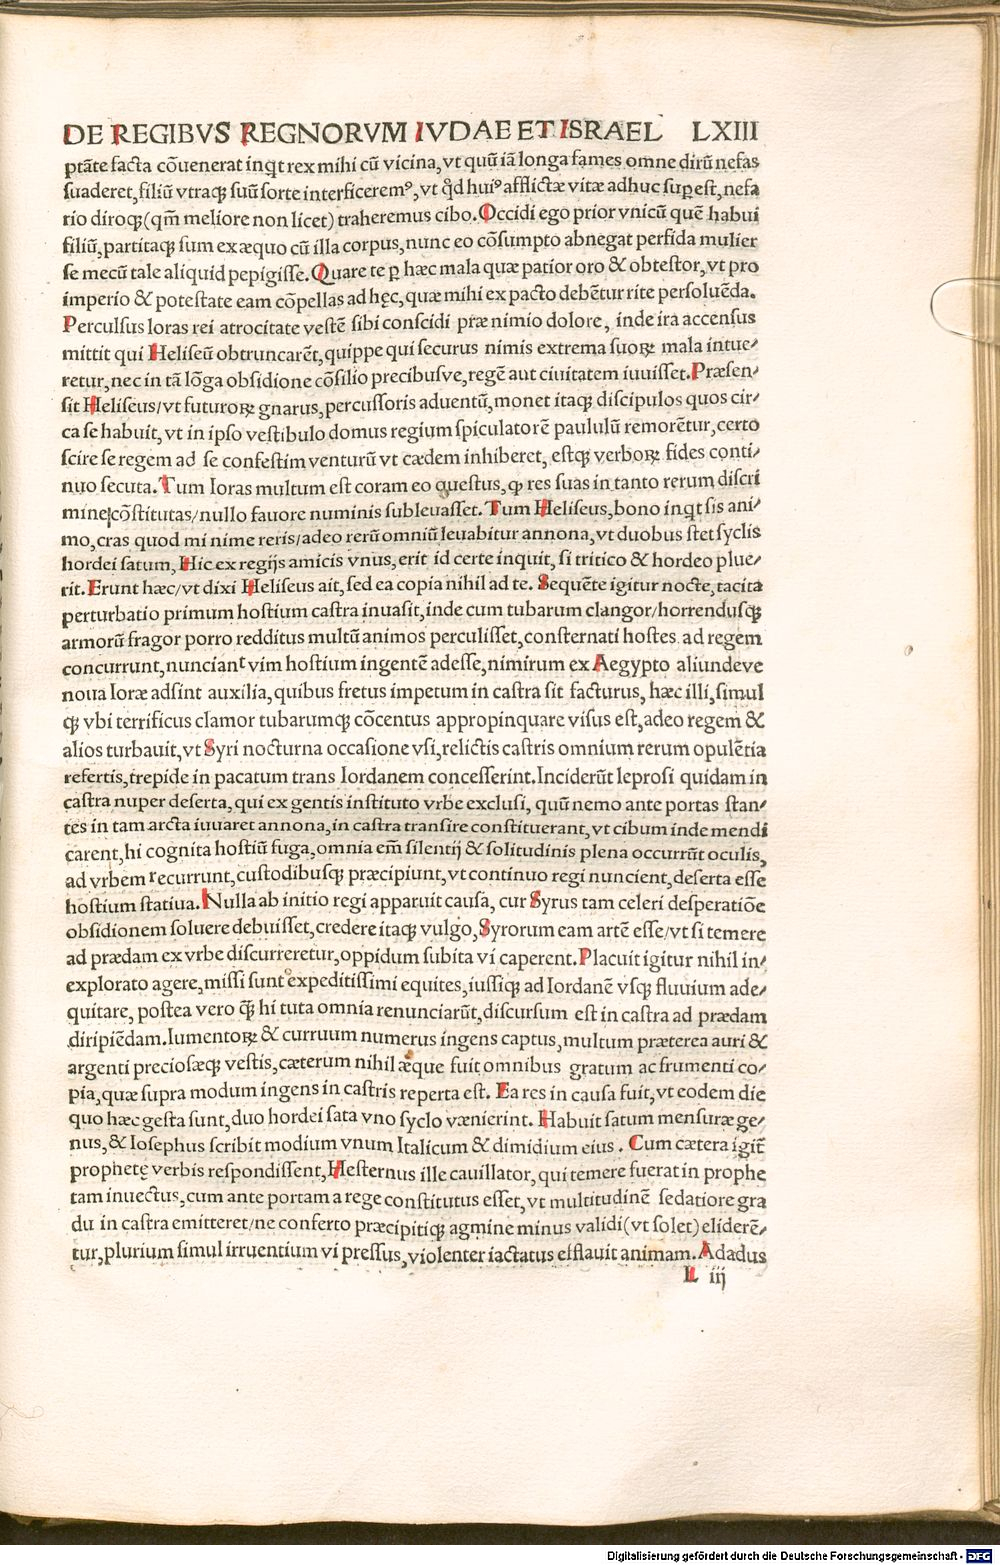 DE REGIBVS REGNORVM IVDAE ET ISRAEL LXIII
ptāte facta cōuenerat inq̇t rex mihi cū vicina, vt quū iā longa fames omne dirū nefas
suaderet, filiū vtraqꝫ suū sorte interficeremꝰ, vt q̇d huiꝰ afflictæ vitæ adhuc suꝑest, nefa
rio diroqꝫ (qm̄ meliore non licet) traheremus cibo. Occidi ego prior vnicū quē habui
filiū, partitaqꝫ sum ex æquo cū illa corpus, nunc eo cōsumpto abnegat perfida mulier
se mecū tale aliquid pepigisse. Quare te ꝑ hæc mala quæ patior oro & obtestor, vt pro
imperio & potestate eam cōpellas ad hęc, quæ mihi ex pacto debētur rite persoluēda.
Perculsus Ioras rei atrocitate vestē sibi conscidi præ nimio dolore, inde ira accensus
mittit qui Heliseū obtruncarēt, quippe qui securus nimis extrema suoꝝ mala intue⸗
retur, nec in tā lōga obsidione cōsilio precibusve, regē aut ciuitatem iuuisset. Præsen⸗
sit Heliseus/vt futuroꝝ gnarus, percussoris aduentū, monet itaqꝫ discipulos quos cir⸗
ca se habuit, vt in ipso vestibulo domus regium spiculatorē paululū remorētur, certo
scire se regem ad se confestim venturū vt cædem inhiberet, estqꝫ verboꝝ fides conti⸗
nuo secuta. Tum Ioras multum est coram eo questus, ꝙ res suas in tanto rerum discri
mine cōstitutas/nullo fauore numinis subleuasset. Tum Heliseus, bono inq̇t sis ani⸗
mo, cras quod mi nime reris/adeo rerū omniū leuabitur annona, vt duobus stet syclis
hordei satum, Hic ex regijs amicis vnus, erit id certe inquit, si tritico & hordeo plue⸗
rit. Erunt hæc/vt dixi Heliseus ait, sed ea copia nihil ad te. Sequēte igitur nocte, tacita
perturbatio primum hostium castra inuasit, inde cum tubarum clangor/horrendusqꝫ
armorū fragor porro redditus multū animos perculisset, consternati hostes ad regem
concurrunt, nunciant vim hostium ingentē adesse, nimirum ex Aegypto aliundeve
noua Ioræ adsint auxilia, quibus fretus impetum in castra sit facturus, hæc illi, simul
qꝫ vbi terrificus clamor tubarumqꝫ cōcentus appropinquare visus est, adeo regem &
alios turbauit, vt Syri nocturna occasione vsi, relictis castris omnium rerum opulētia
refertis, trepide in pacatum trans Iordanem concesserint. Inciderūt leprosi quidam in
castra nuper deserta, qui ex gentis instituto vrbe exclusi, quū nemo ante portas stan⸗
tes in tam arcta iuuaret annona, in castra transire constituerant, vt cibum inde mendi
carent, hi cognita hostiū fuga, omnia em̄ silentij & solitudinis plena occurrūt oculis,
ad vrbem recurrunt, custodibusqꝫ præcipiunt, vt continuo regi nuncient, deserta esse
hostium statiua. Nulla ab initio regi apparuit causa, cur Syrus tam celeri desperatiōe
obsidionem soluere debuisset, credere itaqꝫ vulgo, Syrorum eam artē esse/vt si temere
ad prædam ex vrbe discurreretur, oppidum subita vi caperent. Placuit igitur nihil in⸗
explorato agere, missi sunt expeditissimi equites, iussiqꝫ ad Iordanē vsqꝫ fluuium ade⸗
quitare, postea vero q̄ꝫ hi tuta omnia renunciarūt, discursum est in castra ad prædam
diripiēdam. Iumentoꝝ & curruum numerus ingens captus, multum præterea auri &
argenti preciosæqꝫ vestis, cæterum nihil æque fuit omnibus gratum ac frumenti co⸗
pia, quæ supra modum ingens in castris reperta est. Ea res in causa fuit, vt eodem die
quo hæc gesta sunt, duo hordei sata vno syclo vænierint. Habuit satum mensuræ ge⸗
nus, & Iosephus scribit modium vnum Italicum & dimidium eius. Cum cætera igit̄
prophetę verbis respondissent, Hesternus ille cauillator, qui temere fuerat in prophe
tam inuectus, cum ante portam a rege constitutus esset, vt multitudinē sedatiore gra
du in castra emitteret/ne conferto præcipitiqꝫ agmine minus validi (vt solet) eliderē⸗
tur, plurium simul irruentium vi pressus, violenter iactatus efflauit animam. Adadus
L iij
Digitalisierung gefördert durch die Deutsche Forschungsgemeinschaft - DFG